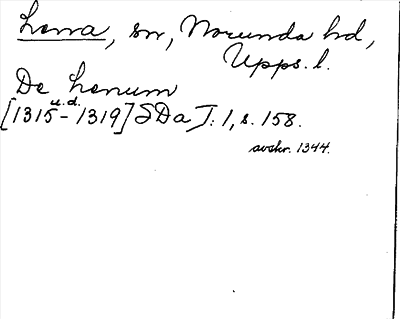 Lena, sn, Norunda hd,
Upps. l.
De Lenum
u.d.
[1315–1319] SDa I: 1, s. 158.
avskr. 1344.